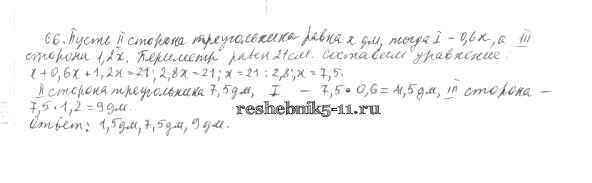 66. Пусть II сторона треугольника равна x дм, тогда I – 0,6x, а III
сторона 1,2x. Периметр равен 21 см. Составим уравнение:
x + 0,6x + 1,2x = 21; 2,8x = 21; x = 21 : 2,8; x = 7,5.
II сторона треугольника 7,5 дм, I – 7,5 • 0,6 = 4,5 дм, III сторона –
7,5 • 1,2 = 9 дм.
reshebnik5-11.ru
Ответ: 1,5 дм, 7,5 дм, 9 дм.